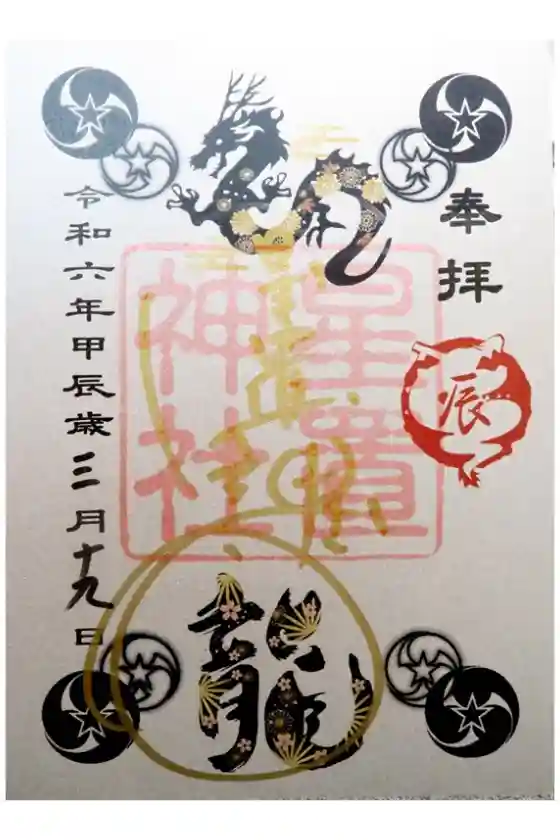 奉拝
辰
星置
神社
龍
令和六年甲辰歳三月十九日